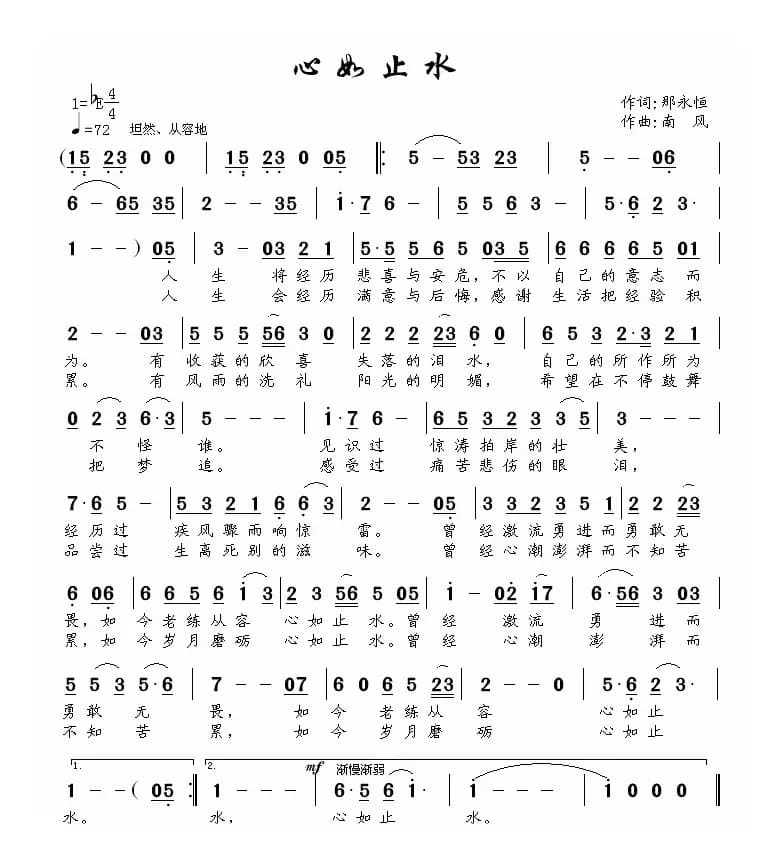 心如止水
1=♭E 4/4
♩=72 坦然、从容地
作词:那永恒
作曲:南 风
(15 23 0 0 | 15 23 0 05 ‖: 5 - 53 23 | 5 - - 06 |
6 - 65 35 | 2 - - 35 | i·7 6 - | 5 5 6 3 - | 5·6 2 3· |
1 - - ) 05 | 3 - 03 2 1 | 5·5 5 6 5 03 5 | 6 6 6 6 5 01 |
人 生 将经历 悲喜与安危,不以 自己的意志而
人 生 会经历 满意与后悔,感谢 生活把经验积
2 - - 03 | 5 5 5 56 3 0 | 2 2 2 23 6 0 | 6 5 3 2·3 2 1 |
为。 有 收获的欣喜 失落的泪水, 自己的所作所为
累。 有 风雨的洗礼 阳光的明媚, 希望在不停鼓舞
0 2 3 6·3 | 5 - - - | i·7 6 - | 6 5 3 2 3 3 5 | 3 - - - |
不怪 谁。 见识过 惊涛拍岸的壮 美,
把梦 追。 感受过 痛苦悲伤的眼 泪,
7·6 5 - | 5 3 2 1 6 6 3 | 2 - - 05 | 3 3 2 3 5 1 | 2 2 2 23 |
经历过 疾风骤雨响惊 雷。 曾 经激流勇进而勇敢无
品尝过 生离死别的滋 味。 曾 经心潮澎湃而不知苦
6 06 | 6 6 5 6 i 3 | 2 3 56 5 05 | i - 02 i7 | 6·56 3 03 |
畏,如 今老练从容 心如止 水。曾 经 激流 勇 进而
累,如 今岁月磨砺 心如止 水。曾 经 心潮 澎 湃而
5 5 3 5·6 | 7 - - 07 | 6 0 6 5 23 | 2 - - 0 | 5·6 2 3· |
勇敢 无 畏, 如 今 老练从 容 心如止
不知 苦 累, 如 今 岁月磨 砺 心如止
1. 2. mf 渐慢渐弱
1 - - ( 05 :‖ 2 - - - | 6·5 6 i· | i - - - | i 0 0 0 ‖
水。 水, 心如止 水。